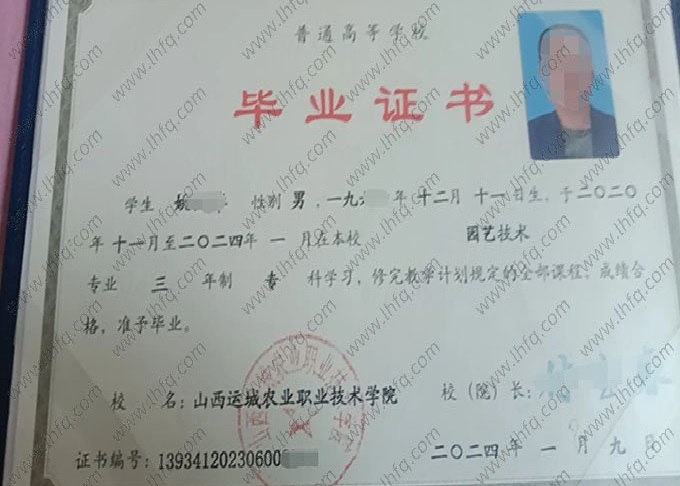 普通高等学校
毕业证书
学生 性别 男，一九 年 十二月 十一日生，于二〇二〇
年 十一月至二〇二四年 一 月在本校 园艺技术
专业 三 年制 专 科学习，修完教学计划规定的全部课程，成绩合
格，准予毕业。
校 名：山西运城农业职业技术学院 校（院）长：
证书编号：13934120230600 二〇二四年 一 月 九 日
www.lhfq.com